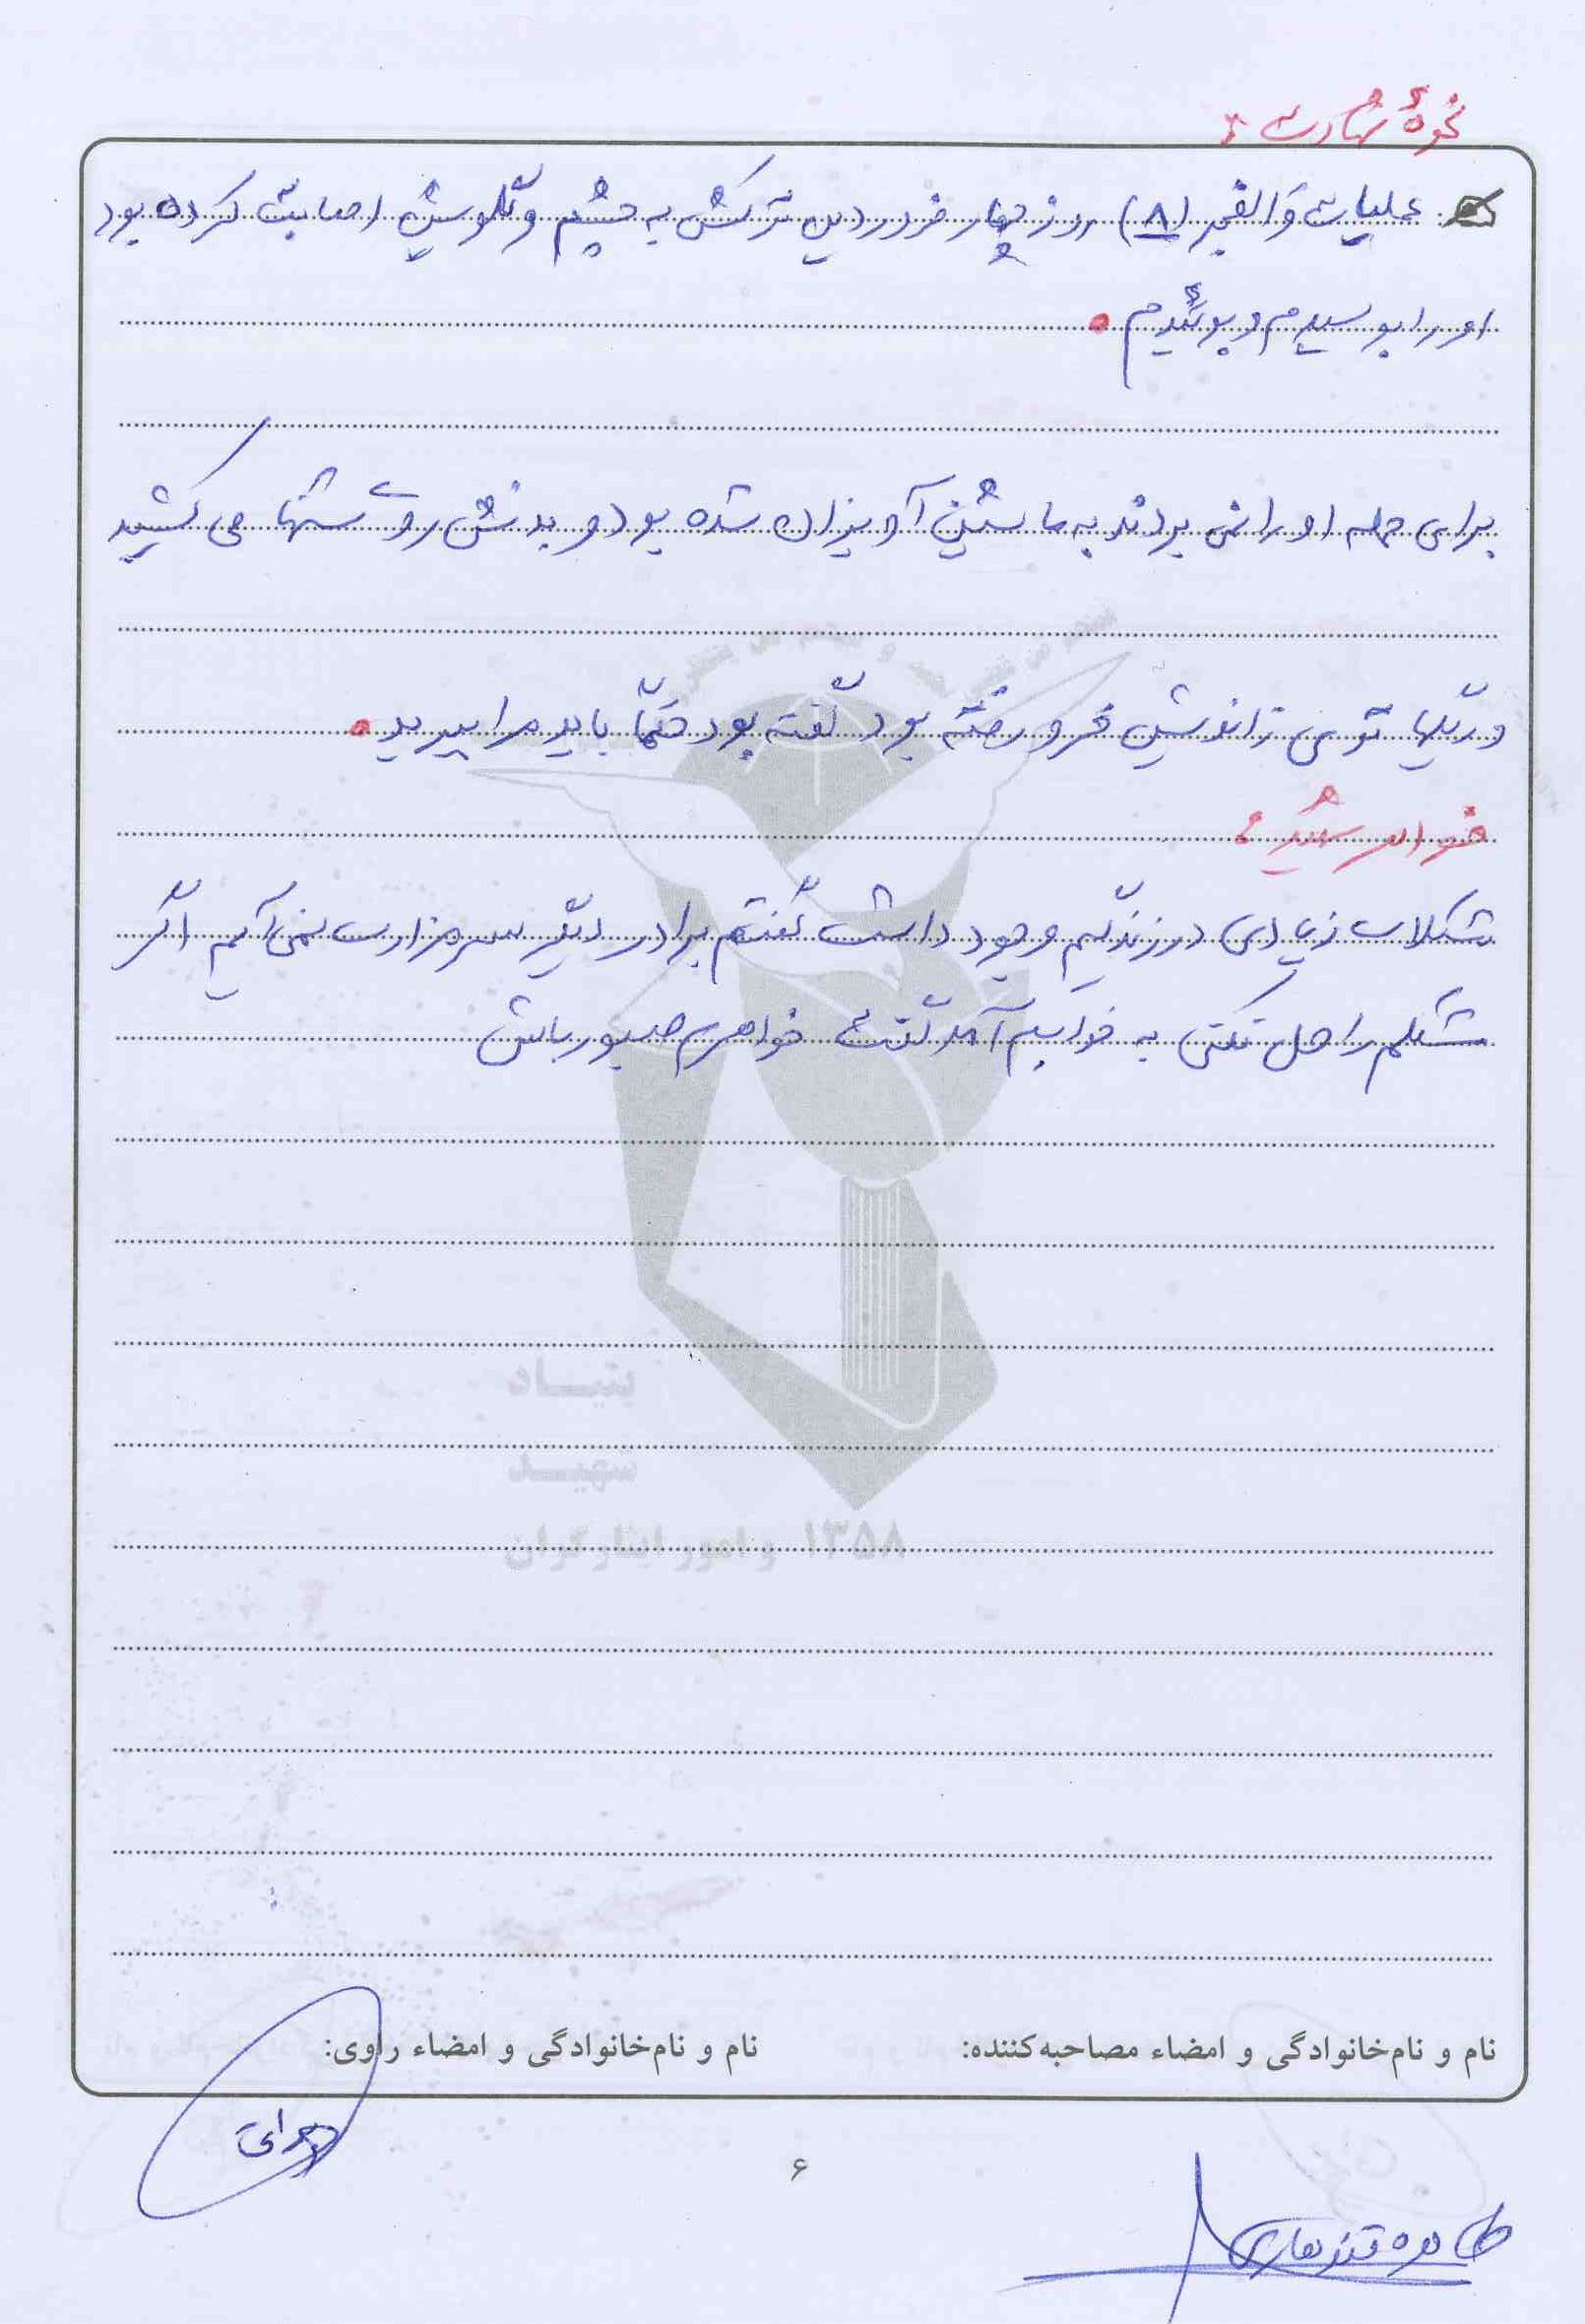 نحوهٔ شهادت:
عملیات والفجر (۸) روز چهار فروردین ترکش به چشم و گلویش اصابت کرده بود
او را بوسیدم و بوئیدم.
برای حمله او را نمی بردند به ماشین آویزان شده بود و بدنش روی شنها می کشید
و ریگها توی زانوش فرو رفته بود گفته بود حتماً باید مرا ببرید.
خواهر شهید:
مشکلات زیادی در زندگیم وجود داشت گفتم برادر دیگر سر مزارت نمی آیم اگر
مشکلم را حل نکنی به خوابم آمد گفت خواهرم صبور باش
بنیاد
شهید
و امور ایثارگران ۱۳۵۸
نام و نام‌خانوادگی و امضاء مصاحبه‌کننده: نام و نام‌خانوادگی و امضاء راوی:
۶
طاهره قندهاری